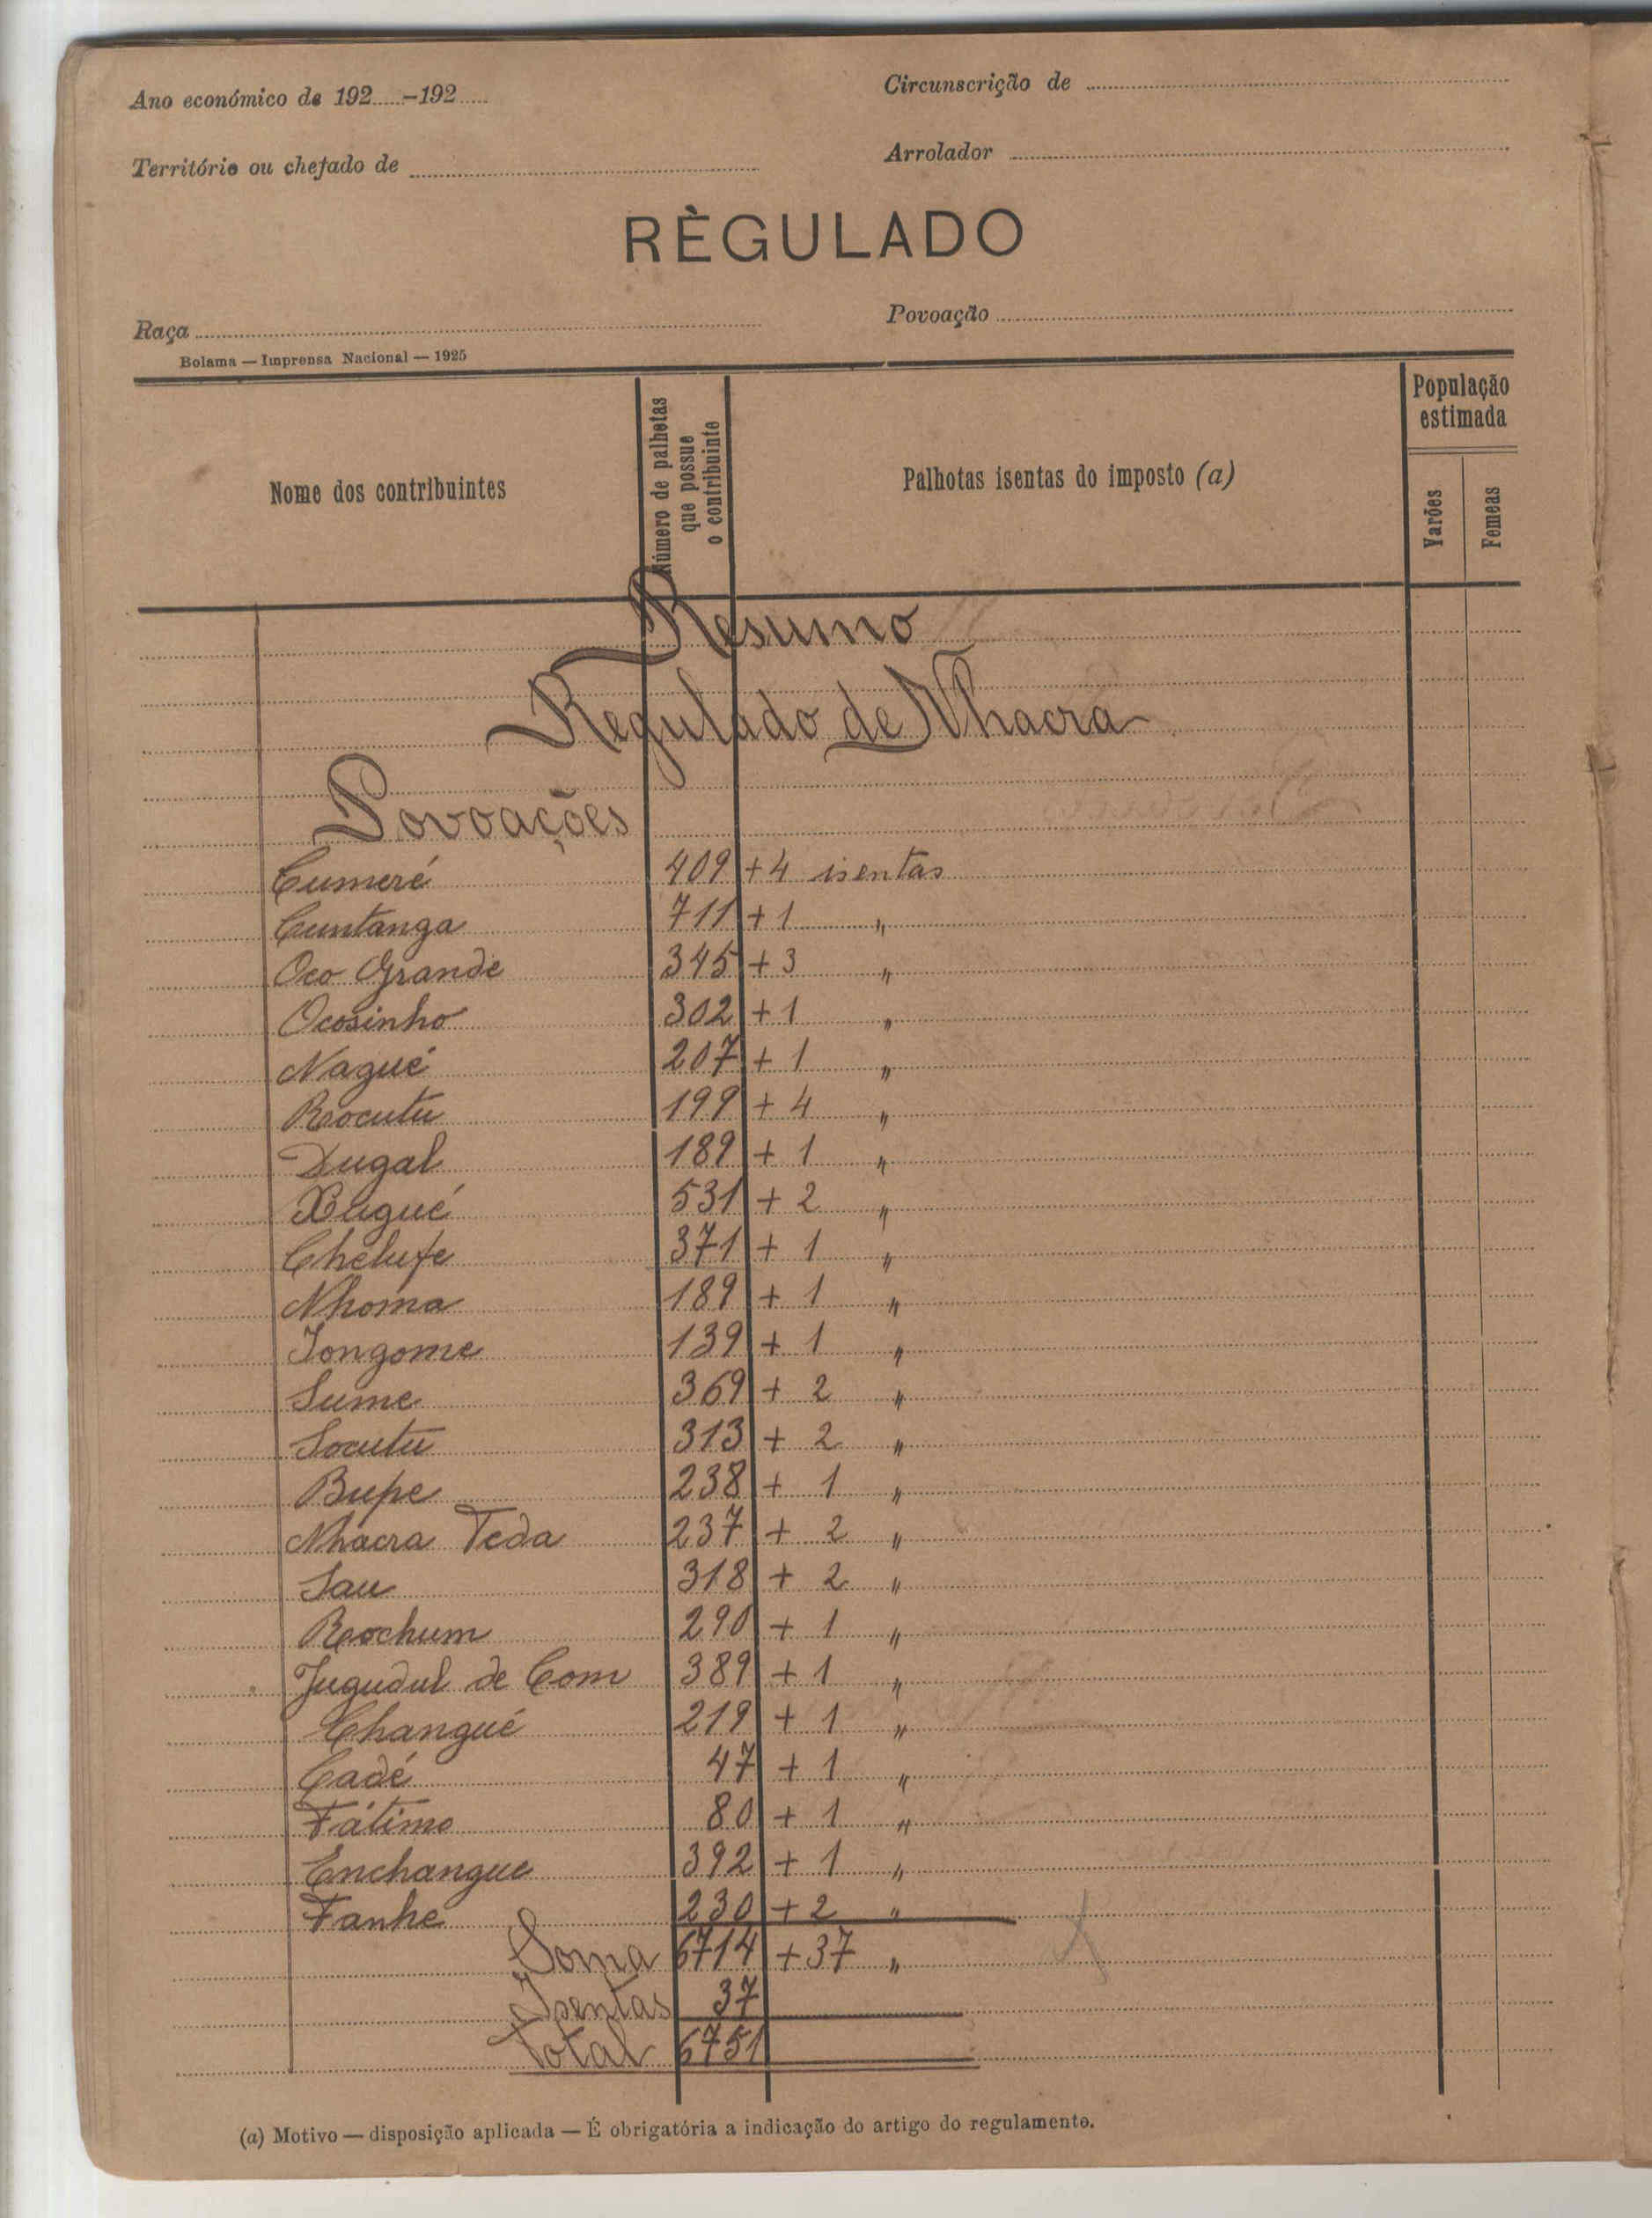 Ano económico de 192.....-192.....
Circunscrição de
Território ou chefado de
Arrolador
RÈGULADO
Raça
Povoação
Bolama — Imprensa Nacional — 1925
Nome dos contribuintes
Número de palhotas que possue o contribuinte
Palhotas isentas do imposto (a)
População estimada
Varões
Femeas
Resumo
Regulado de Nhacra
Povoações
Cumeré 409 +4 isentas
Cuntanga 711 +1 "
Oco Grande 345 +3 "
Ocosinho 302 +1 "
Nagué 207 +1 "
Rocutu 199 +4 "
Dugal 189 +1 "
Bugué 531 +2 "
Chelufe 371 +1 "
Nhoma 189 +1 "
Iongome 139 +1 "
Sume 369 +2 "
Socutu 313 +2 "
Bupe 238 +1 "
Nhacra Teda 237 +2 "
Sau 318 +2 "
Rochum 290 +1 "
Jugudul de Com 389 +1 "
Changué 219 +1 "
Cadé 47 +1 "
Fátimo 80 +1 "
Enchangue 392 +1 "
Fanhe 230 +2 "
Soma 6714 +37 "
Isentas 37
Total 6751
(a) Motivo — disposição aplicada — É obrigatória a indicação do artigo do regulamento.